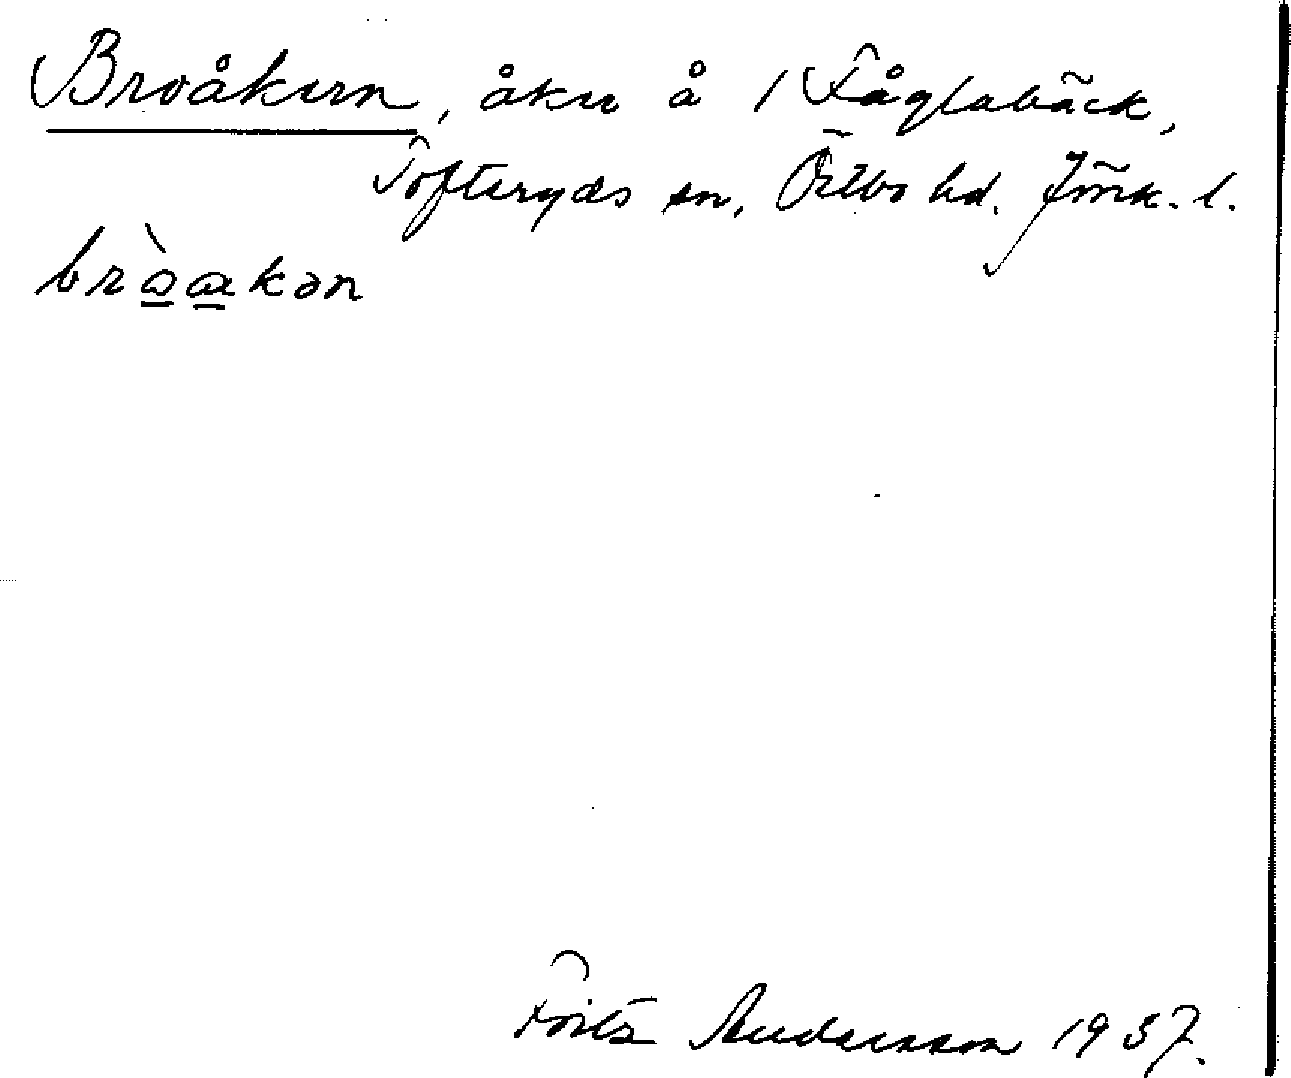 Broåkern, åker å 1 Fåglabäck,
Tofteryds sn, Östbo hd. Jönk. l.
bròakən
Fritz Andersson 1937.